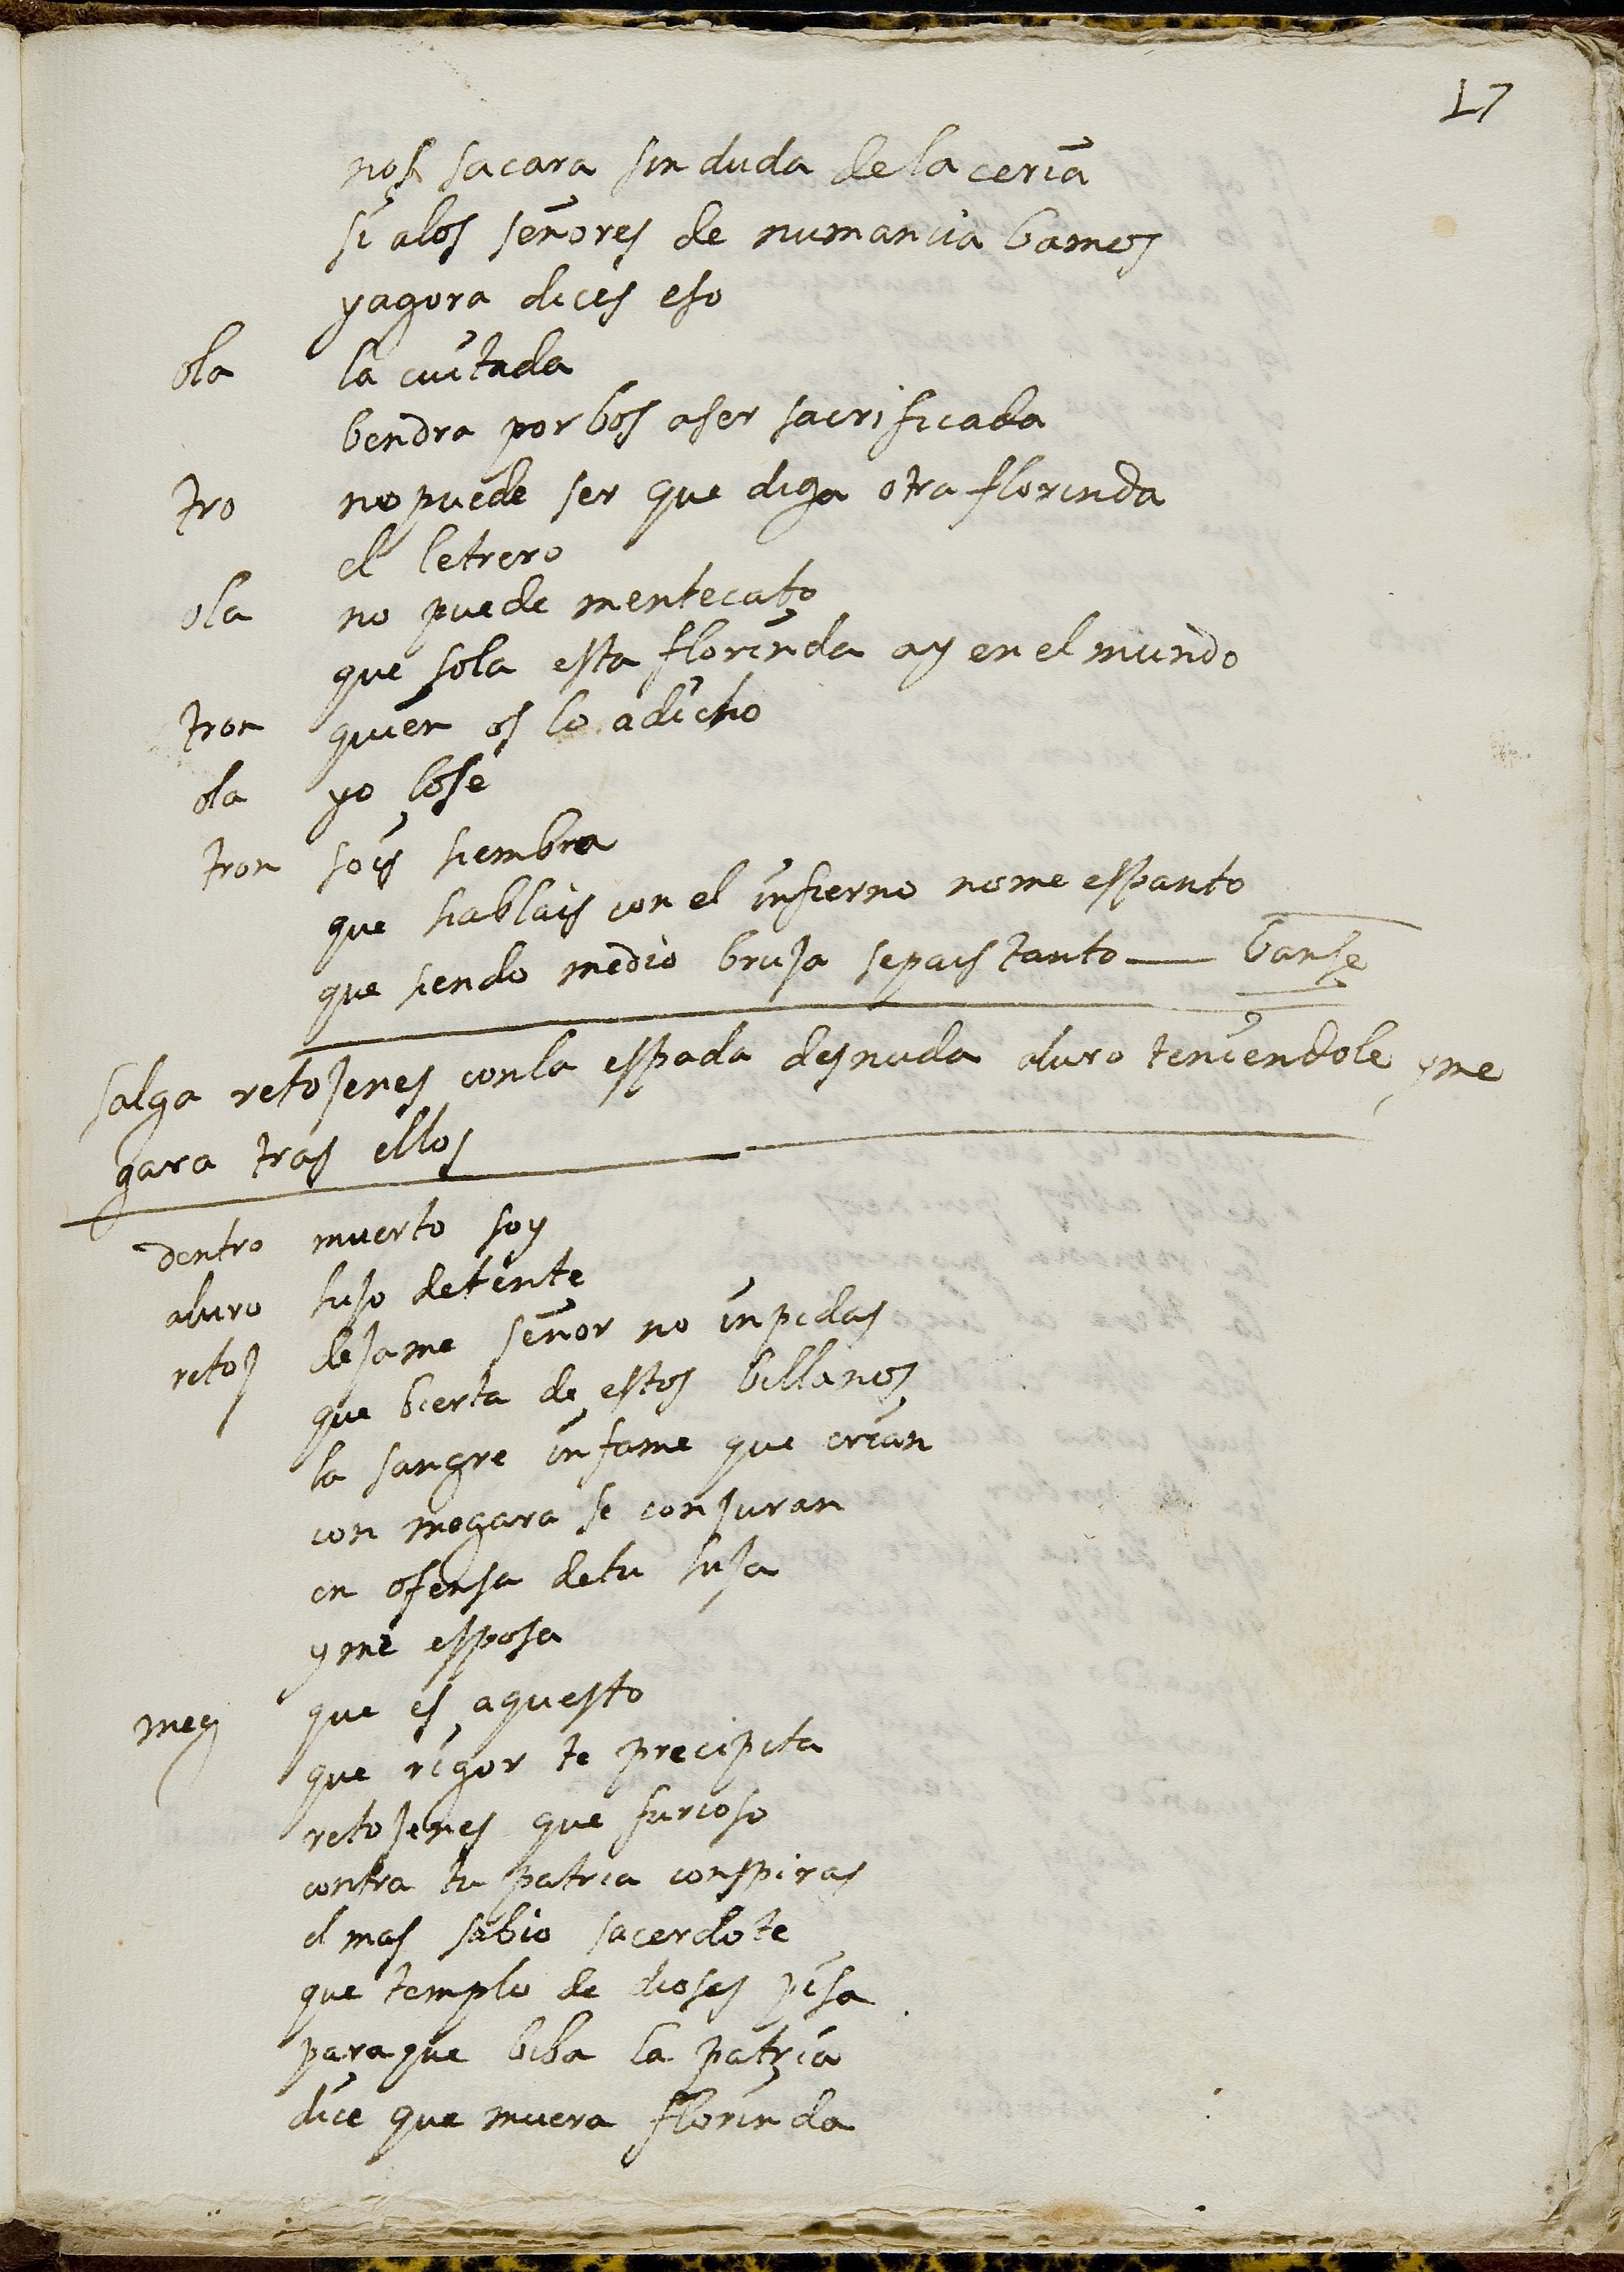 17
nos sacara sin duda de la ceria
si a los señores de numancia bamos
y agora dices eso
ola la cuitada
bendra por bos a ser sacrificada
tro no puede ser que diga otra florinda
el letrero
ola no puede mentecato
que sola esta florinda ay en el mundo
tron quien os lo a dicho
ola yo lo se
tron sois hembra
que hablais con el infierno no me espanto
que siendo medio bruja sepais tanto — banse
salga retojenes con la espada desnuda aluro teniendole y me
gara tras ellos
dentro muerto soy
aluro hijo detente
retoj dejame señor no inpidas
que bierta de estos billanos
la sangre infame que crian
con megara se conjuran
en ofensa de tu hija
y mi esposa
meg que es aquesto
que rigor te precipita
retojenes que furioso
contra tu patria conspiras
el mas sabio sacerdote
que templo de dioses pisa
para que biba la patria
dice que muera florinda